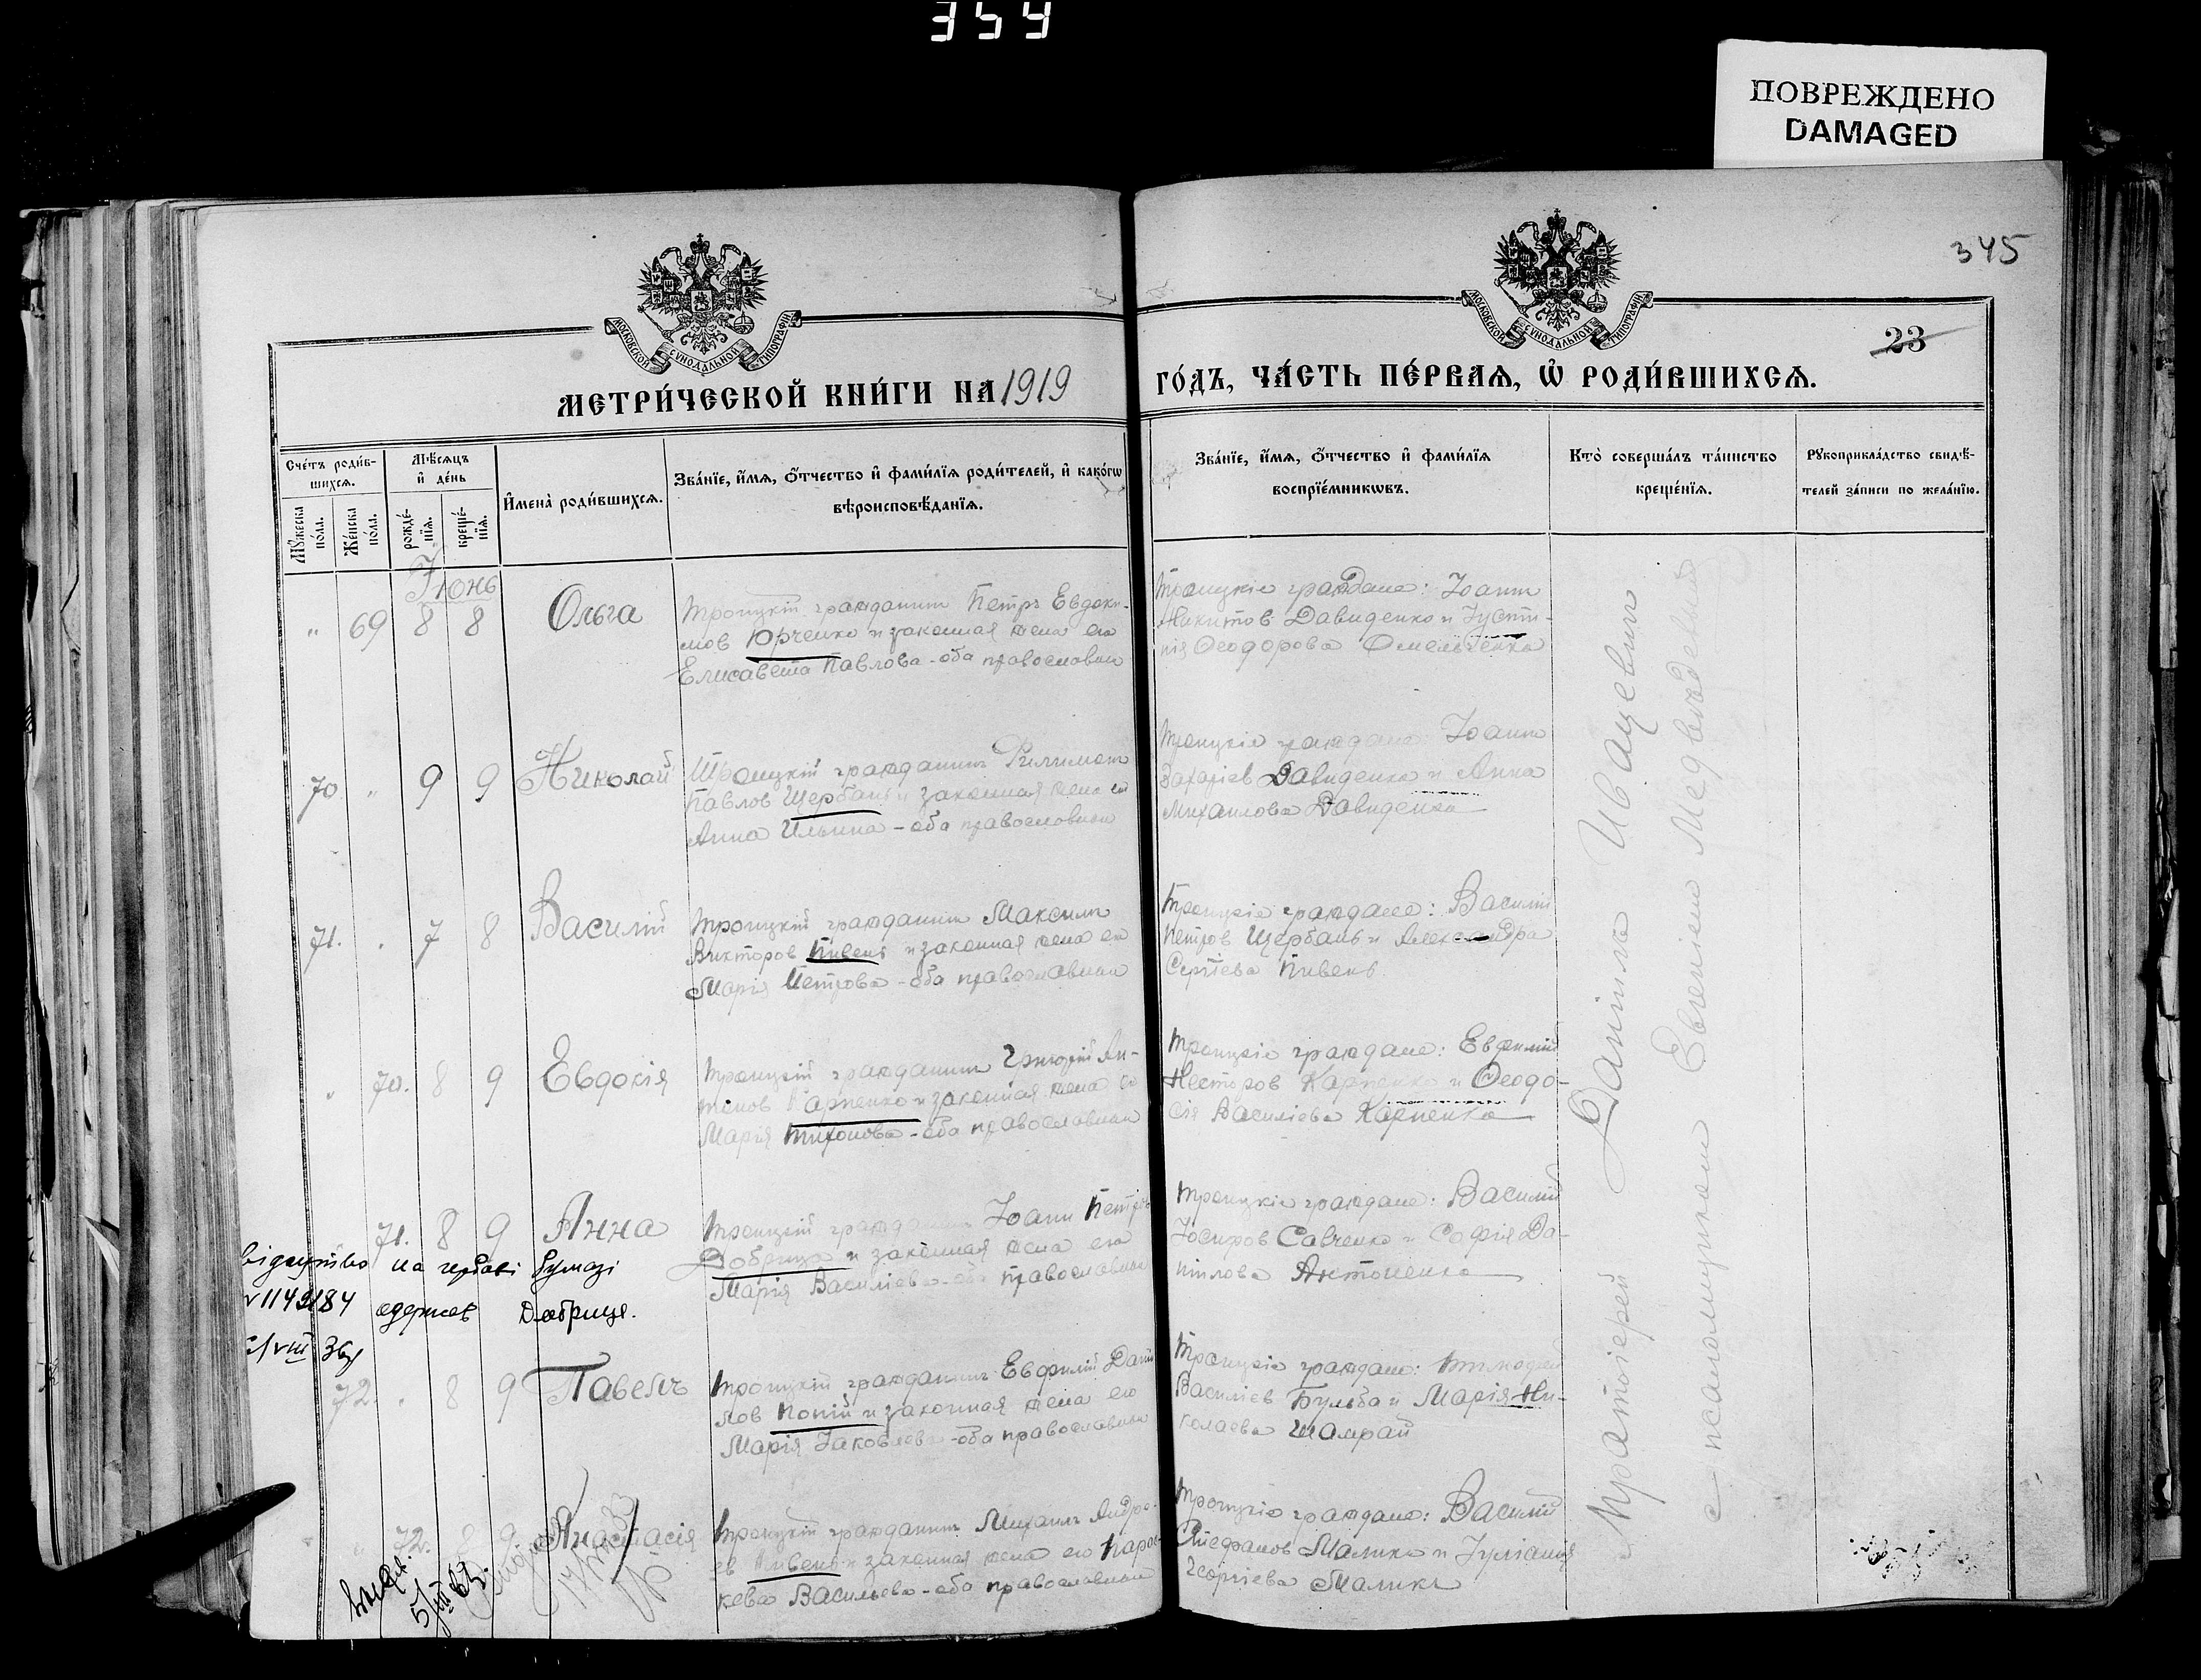 354
ПОВРЕЖДЕНО
DAMAGED
345
23
МОСКОВСКОЙ СѴНОДАЛЬНОЙ ТИПОГРАФІИ
МОСКОВСКОЙ СѴНОДАЛЬНОЙ ТИПОГРАФІИ
МЕТРИ́ЧЕСКОЙ КНИ́ГИ НА 1919
ГО́ДЪ, ЧА́СТЬ ПЕ́РВАѦ, Ѡ҆ РОДИ́ВШИХСѦ.
Сче́тъ роди́в-
шихсѧ.
Мѣ́сѧцъ
и҆ де́нь
Мꙋ́жеска
по́ла.
Же́нска
по́ла.
рожде́-
нїѧ.
креще́-
нїѧ.
И҆мена̀ роди́вшихсѧ.
Зва́нїе, и҆́мѧ, ѻ҆́тчество и҆ фами́лїѧ роди́телей, и҆ како́гѡ
вѣроисповѣ́данїѧ.
Зва́нїе, и҆́мѧ, ѻ҆́тчество и҆ фами́лїѧ
воспрїе́мникѡвъ.
Кто̀ соверша́лъ та́инство
креще́нїѧ.
Рꙋкоприкла́дство свидѣ́-
телей за́писи по жела́нїю.
Іюнь
" 69 8 8 Ольга
Троицкій гражданинъ Петръ Евдоки-
мов Юрченко и законная жена его
Елисавета Павлова - оба православныи
Троицкіе граждане: Іоаннъ
Никитов Давиденко и Іусти-
нія Ѳеодорова Омельченко
70 " 9 9 Николай
Троицкій гражданинъ Филимонъ
Павлов Щербань и законная жена его
Анна Ильина - оба православныи
Троицкіе граждане: Іоаннъ
Захаріев Давиденко и Анна
Михаилова Давиденко
71. " 7 8 Василій
Троицкій гражданинъ Максимъ
Викторов Пивень и законная жена его
Марія Петрова - оба православныи
Троицкіе граждане: Василій
Петров Щербань и Александра
Сергіева Пивень
" 70. 8 9 Евдокія
Троицкій гражданинъ Григорій Ан-
тонов Карпенко и законная жена его
Марія Тихонова - оба православныи
Троицкіе граждане: Евфимій
Несторов Карпенко и Ѳеодо-
сія Василіева Карпенко
71. 8 9 Анна
Троицкій гражданинъ Іоанн Петров
Добрица и законная жена его
Марія Василіева - оба православныи
Троицкіе граждане: Василій
Іосифов Савченко и Софія Да-
ниілова Антоненко
на гербові бумазі
1149184 одержав Добриця.
72. " 8 9 Павелъ
Троицкій гражданинъ Евфимій Дани-
лов Копій и законная жена его
Марія Іаковлева - оба православныи
Троицкіе граждане: Тимофей
Василіев Бульба и Марія Ни-
колаева Шамрай
72. 8 9 Анастасія
Троицкій гражданинъ Михаилъ Андре-
ев Пивень и законная жена его Парас-
кева Васильева - оба православныи
Троицкіе граждане: Василій
Стефанов Малико и Іуліанія
Георгіева Малико
Протоіерей Даніилъ Ивацевич
с псаломщиком Евгеніем Медвѣдевым